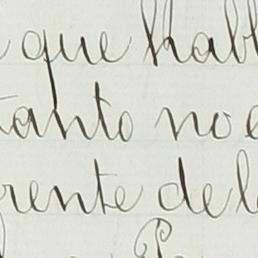 que habl
tanto no e
rente de l